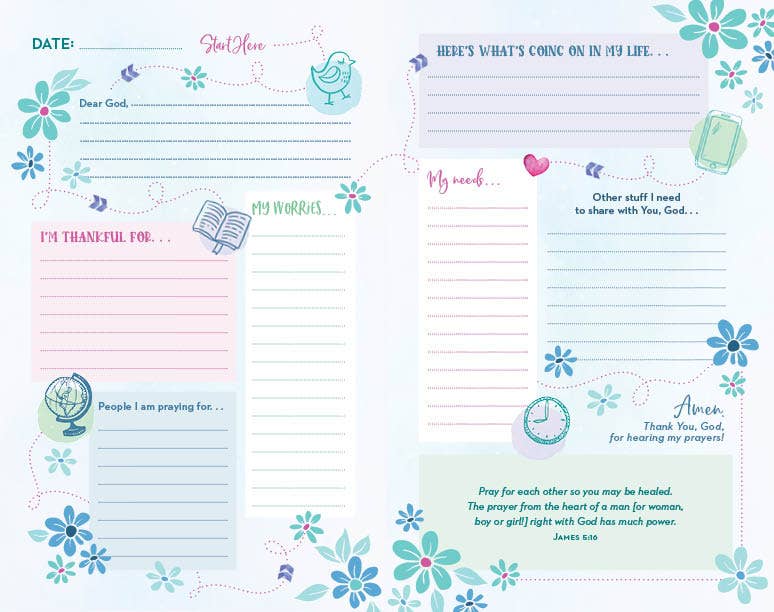 DATE:
Start Here
Dear God,
I'M THANKFUL FOR. . .
MY WORRIES. . .
People I am praying for. . .
HERE'S WHAT'S GOING ON IN MY LIFE. . .
My needs. . .
Other stuff I need
to share with You, God. . .
Amen.
Thank You, God,
for hearing my prayers!
Pray for each other so you may be healed.
The prayer from the heart of a man [or woman,
boy or girl!] right with God has much power.
JAMES 5:16